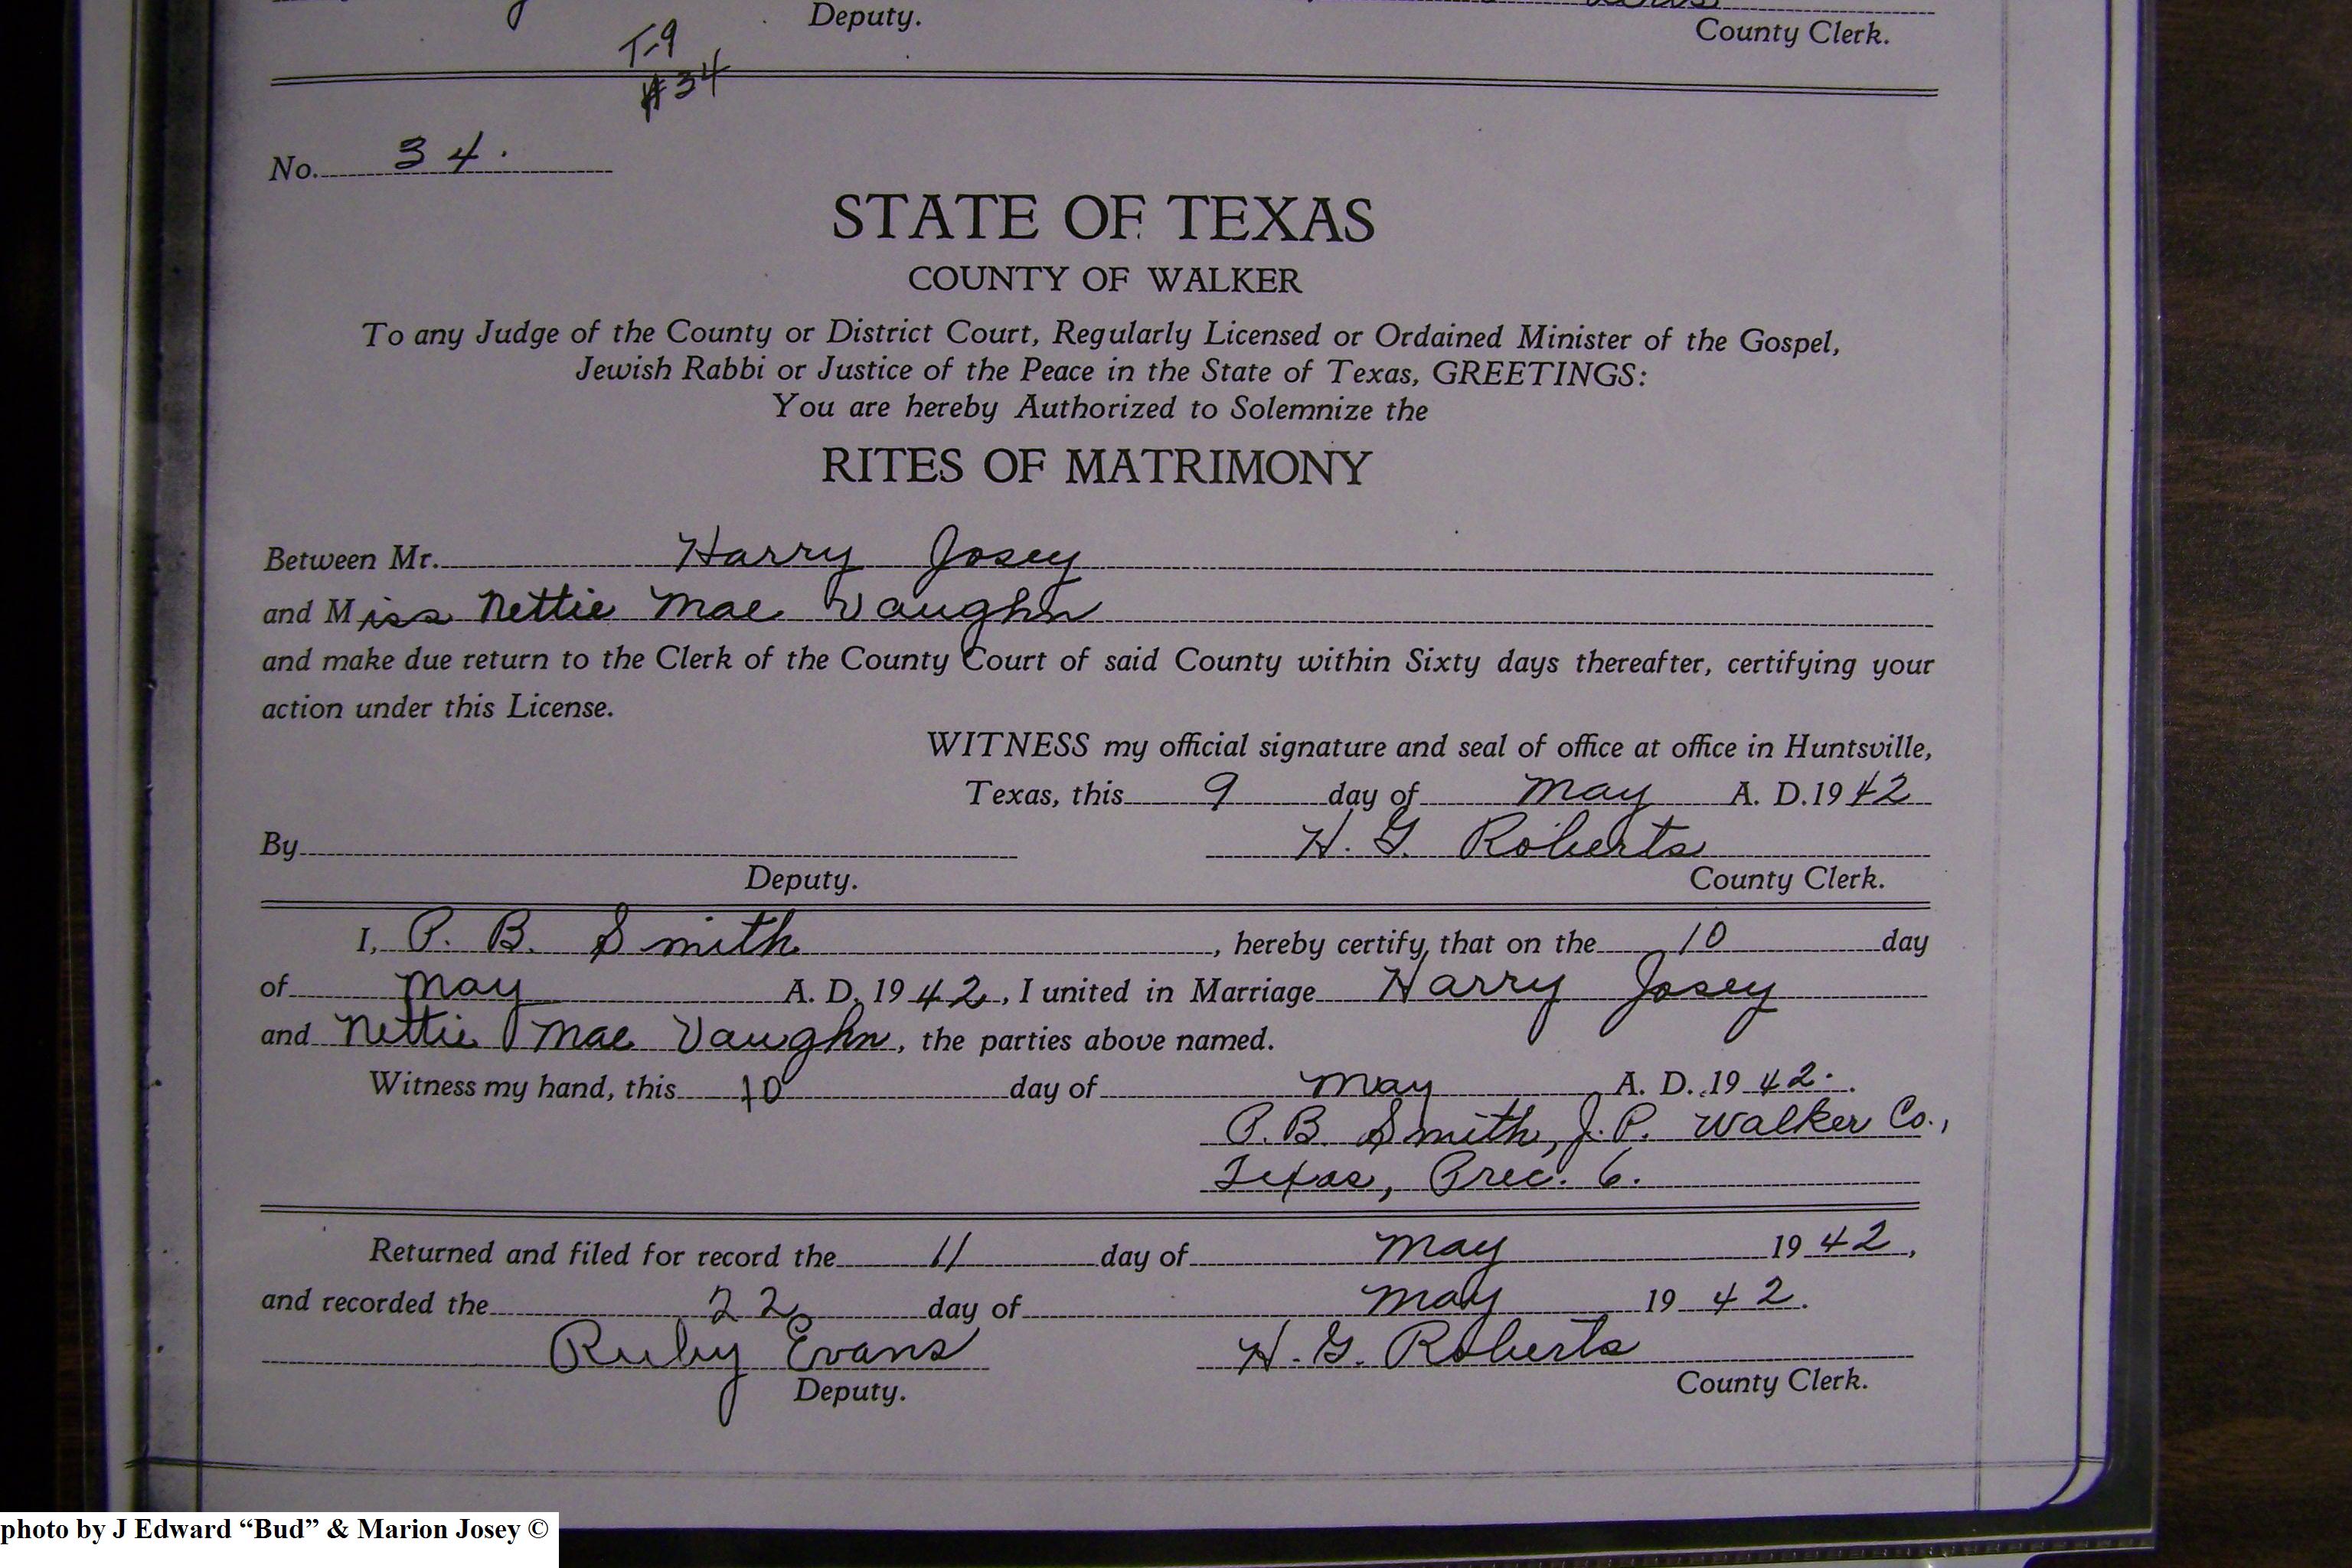 Deputy.
County Clerk.
T-9
#34
No. 34.
STATE OF TEXAS
COUNTY OF WALKER
To any Judge of the County or District Court, Regularly Licensed or Ordained Minister of the Gospel,
Jewish Rabbi or Justice of the Peace in the State of Texas, GREETINGS:
You are hereby Authorized to Solemnize the
RITES OF MATRIMONY
Between Mr. Harry Josey
and Miss Nettie Mae Vaughn
and make due return to the Clerk of the County Court of said County within Sixty days thereafter, certifying your
action under this License.
WITNESS my official signature and seal of office at office in Huntsville,
Texas, this 9 day of May A. D. 1942
By H. G. Roberts
Deputy. County Clerk.
I, P. B. Smith, hereby certify that on the 10 day
of May A. D. 1942, I united in Marriage Harry Josey
and Nettie Mae Vaughn, the parties above named.
Witness my hand, this 10 day of May A. D. 1942.
P.B. Smith, J.P. Walker Co.,
Texas, Prec. 6.
Returned and filed for record the 11 day of May 1942,
and recorded the 22 day of May 1942.
Ruby Evans H. G. Roberts
Deputy. County Clerk.
photo by J Edward “Bud” & Marion Josey ©